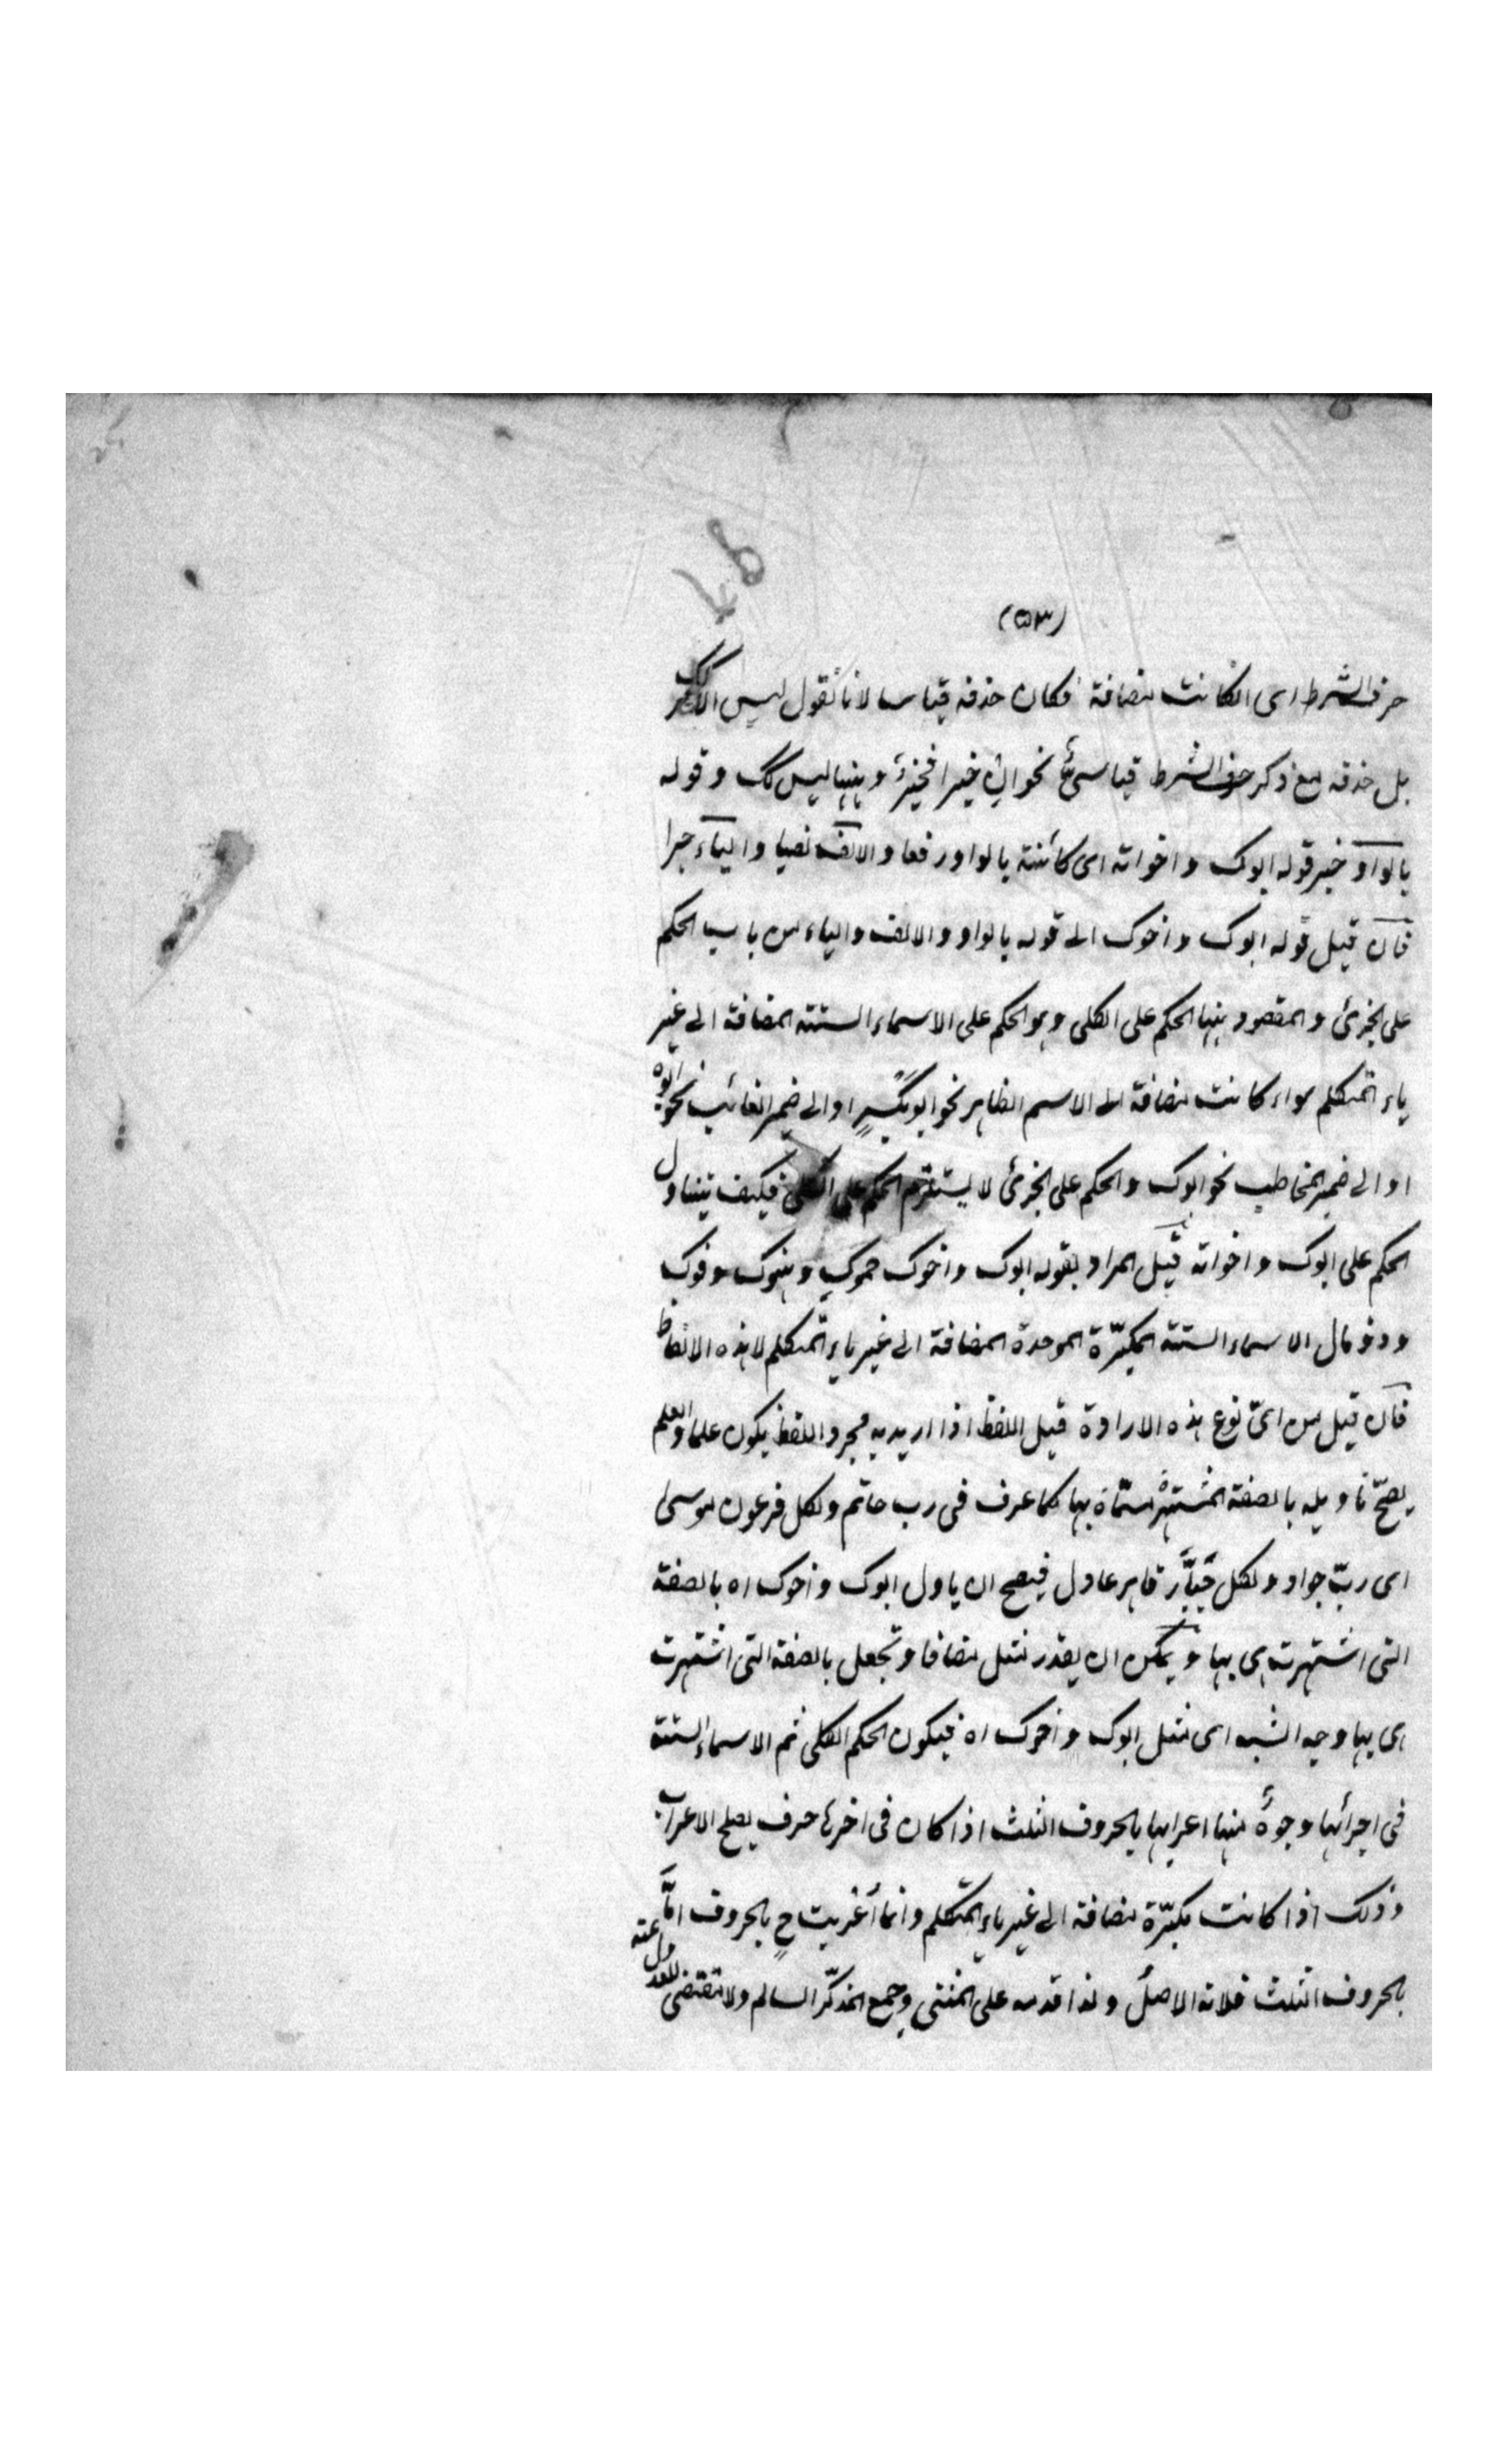 (٥٣)
حرف الشرط اى ان كانت مضافة فكان حذفه قياسا لانا نقول ليس الامر كك
بل حذفه مع ذكر حرف الشرط قياسىٌّ نحو ان خيرا فخيرٌ وههنا ليس كك وقوله
بالواو خبر قوله ابوك واخواته اى كائنة بالواو رفعا والالف نصبا والياء جرا
فان قيل قوله ابوك واخوك الى قوله بالواو والالف والياء من باب الحكم
على الجزئ والمقصود ههنا الحكم على الكلى وهو الحكم على الاسماء الستة المضافة الى غير
ياء المتكلم سواء كانت مضافة الى الاسم الظاهر نحو ابو بكرٍ او الى ضمير الغائب نحو ابوه
او الى ضمير المخاطب نحو ابوك والحكم على الجزئ لا يستلزم الحكم على الكلى فكيف يتناول
الحكم على ابوك واخواته قيل المراد بقوله ابوك واخوك حموك وهنوك وفوك
وذو مال الاسماء الستة المكبّرة الموحدة المضافة الى غير ياء المتكلم لا هذه الالفاظ
فان قيل من اىّ نوع هذه الارادة قيل اللفظ اذا اريد به مجرد اللفظ يكون علما والعلم
يصحّ تاويله بالصفة المشتهر مسمّاه بها كما عرف فى رب حاتم ولكل فرعون موسى
اى ربّ جواد ولكل جبّار قاهر عادل فيصح ان ياول ابوك واخوك اه بالصفة
التى اشتهرت هى بها ويمكن ان يقدر مثل مضافا وتجعل بالصفة التى اشتهرت
هى بها وجه الشبه اى مثل ابوك واخوك اه فيكون الحكم الكلى ثم الاسماء الستة
فى اجرائها وجوهٌ منها اعرابها بالحروف الثلث اذا كان فى اخرها حرف يصلح الاعراب
وذلك اذا كانت مكبّرة مضافة الى غير ياء المتكلم وانما أعربت ح بالحروف امّا
بالحروف الثلث فلانه الاصل ولذا قدمه على المثنى وجمع المذكّر السالم ولا تقتضى للعدول عنه